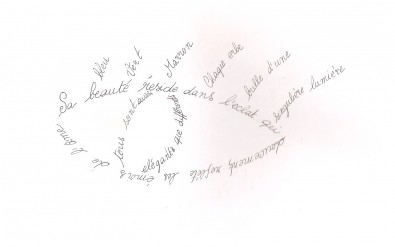 bleu
Vert
Marron
Chaque orbe
brille d'une
singulière lumière
Sa beauté réside dans l'éclat qui
doucement reflète les émois de l'âme
tous sont aussi
élégants que différents